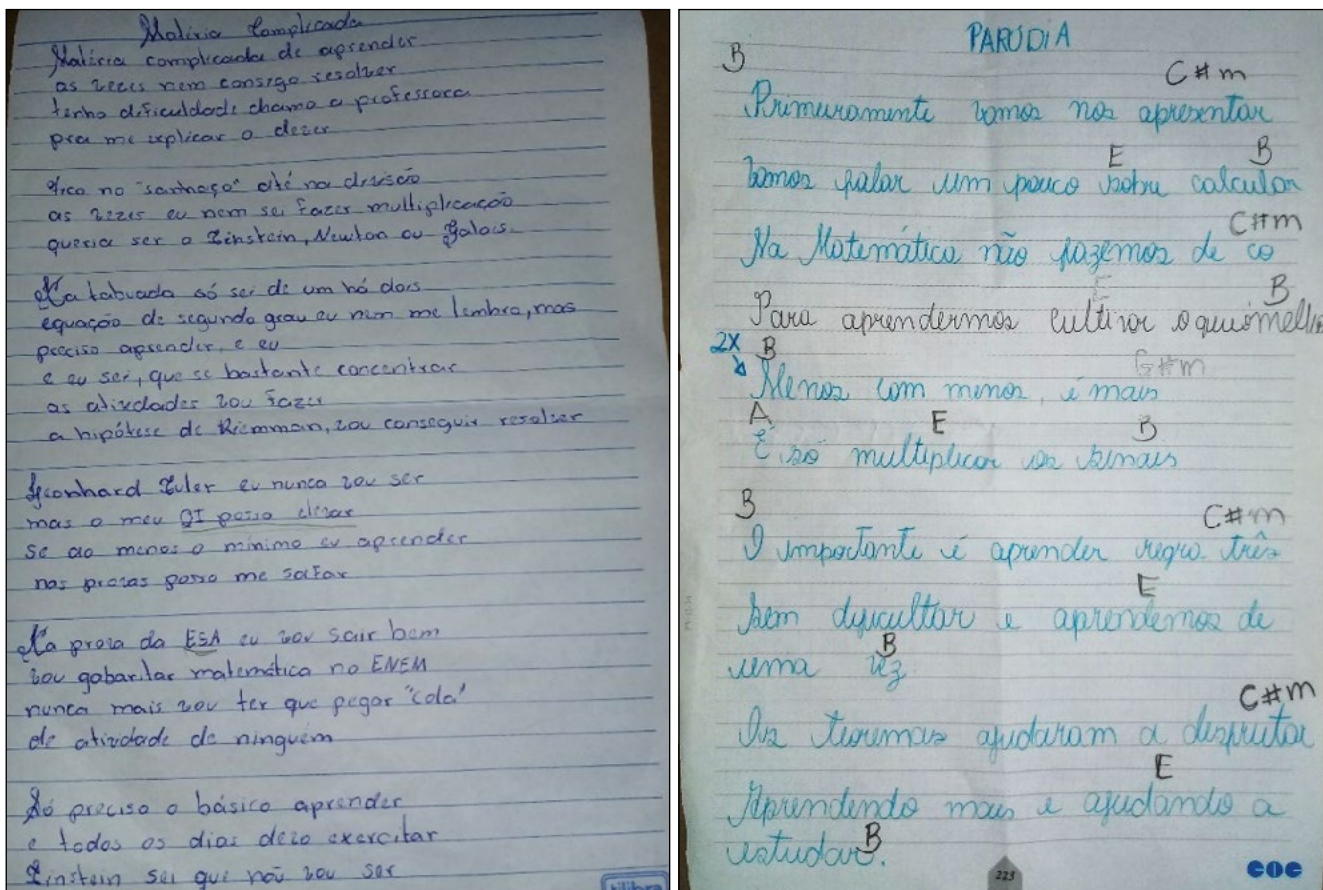 Matéria Complicada
Matéria complicada de aprender
as vezes nem consigo resolver
tenho dificuldade chamo a professora
pra me explicar o dever
Fico no "sanhaço" até na divisão
as vezes eu nem sei fazer multiplicação
queria ser o Einstein, Newton ou Galois.
Na tabuada só sei de um há dois
equação de segundo grau eu nem me lembro, mas
preciso aprender, e eu
e eu sei, que se bastante concentrar
as atividades vou fazer
a hipótese de Riemman, vou conseguir resolver
Leonhard Euler eu nunca vou ser
mas o meu QI posso elevar
se ao menos o mínimo eu aprender
nas provas posso me safar
Na prova da ESA eu vou sair bem
vou gabaritar matemática no ENEM
nunca mais vou ter que pegar "cola"
de atividade de ninguém
Só preciso o básico aprender
e todos os dias devo exercitar
Einstein sei que não vou ser
tilibra
PARÓDIA
B C#m
Primeiramente vamos nos apresentar
E B
Vamos falar um pouco sobre calcular
C#m
Na Matemática não fazemos de co
E B
Para aprendermos cultivar o que é
2X B G#m
Menos com menos, é mais
A E B
É só multiplicar os sinais
B C#m
O importante é aprender regra três
E
Sem dificultar e aprendemos de
B
uma vez.
C#m
Os teoremas ajudaram a desfrutar
E
Aprendendo mais e ajudando a
B
estudar.
223
COC